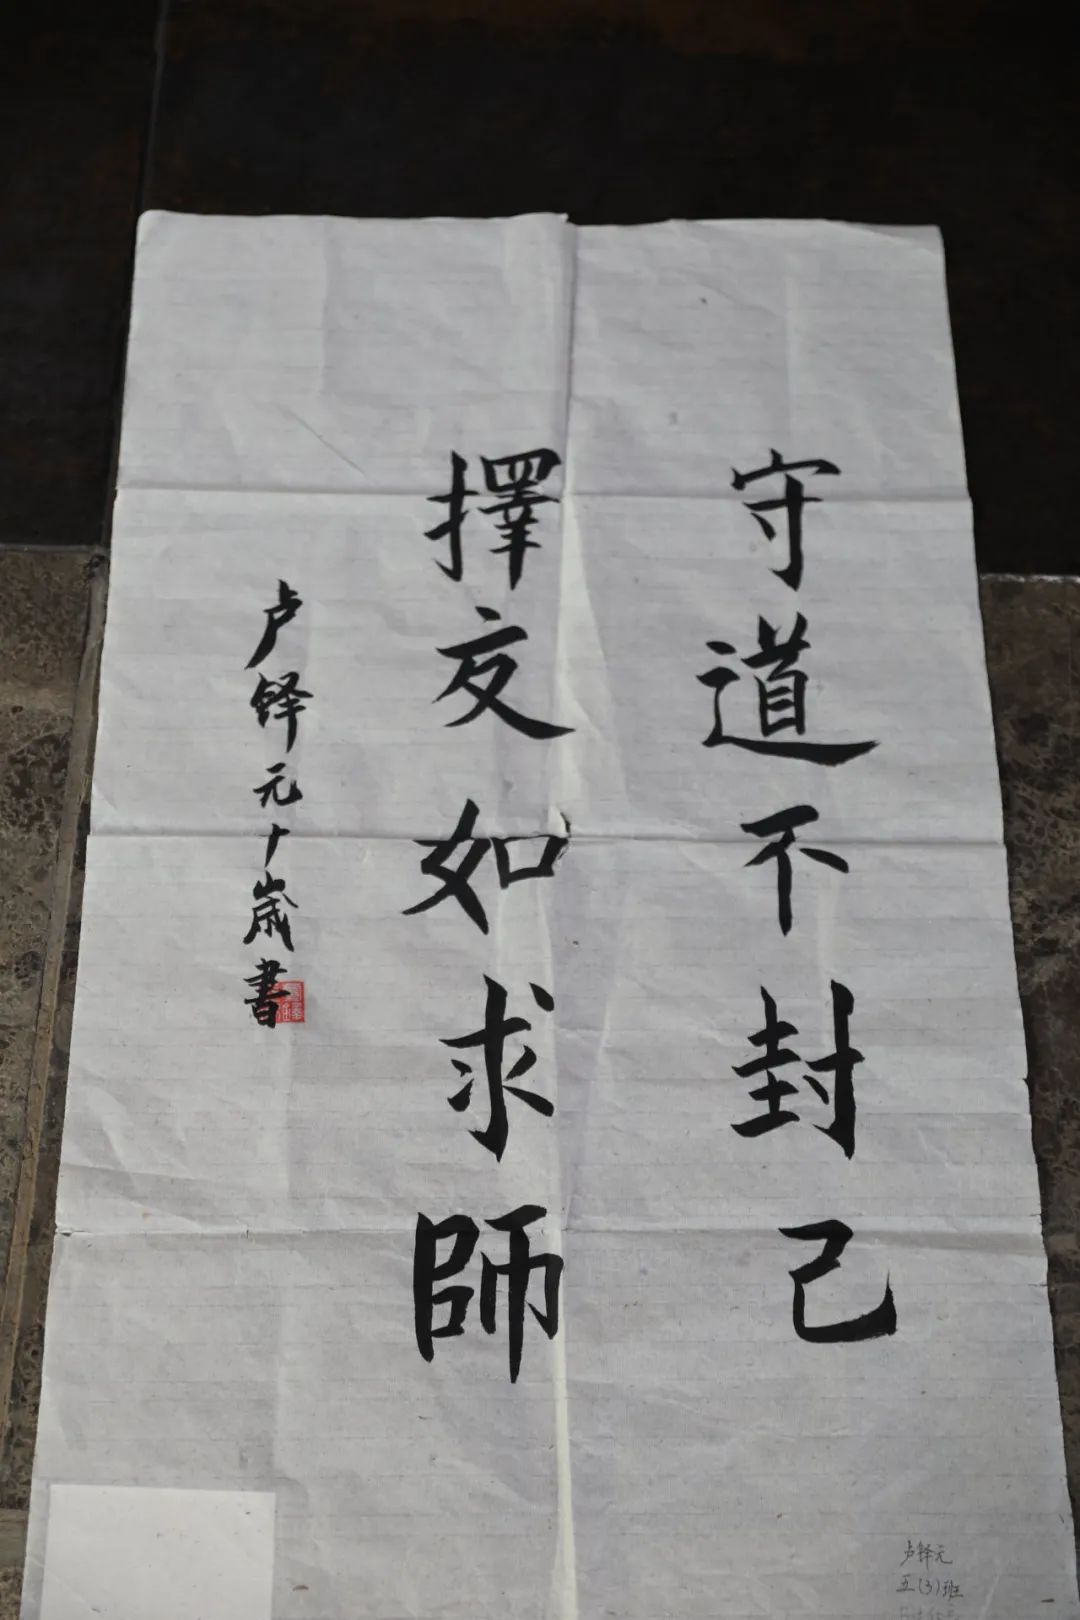 守道不封己
擇友如求師
卢铎元十歲書
卢铎元
五(3)班